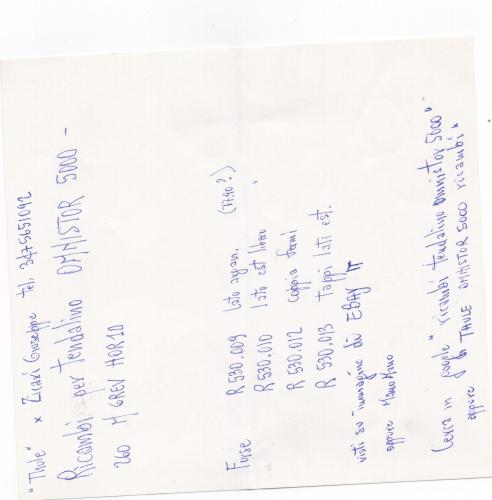 "Thule" x Zicari Giuseppe tel. 3475651092
Ricambi per tendalino OMNISTOR 5000 -
260 M GREY HOR10
Forse R 530.009 lato argan. (17.90?.)
R 530.010 lato est libero "
R 530.012 coppia fermi
R 530.013 tappi lati est.
visti su immagine di EBAY IT
oppure ManoMano
Cerca in google "ricambi tendalino omnistor 5000"
oppure "THULE OMNISTOR 5000 ricambi"